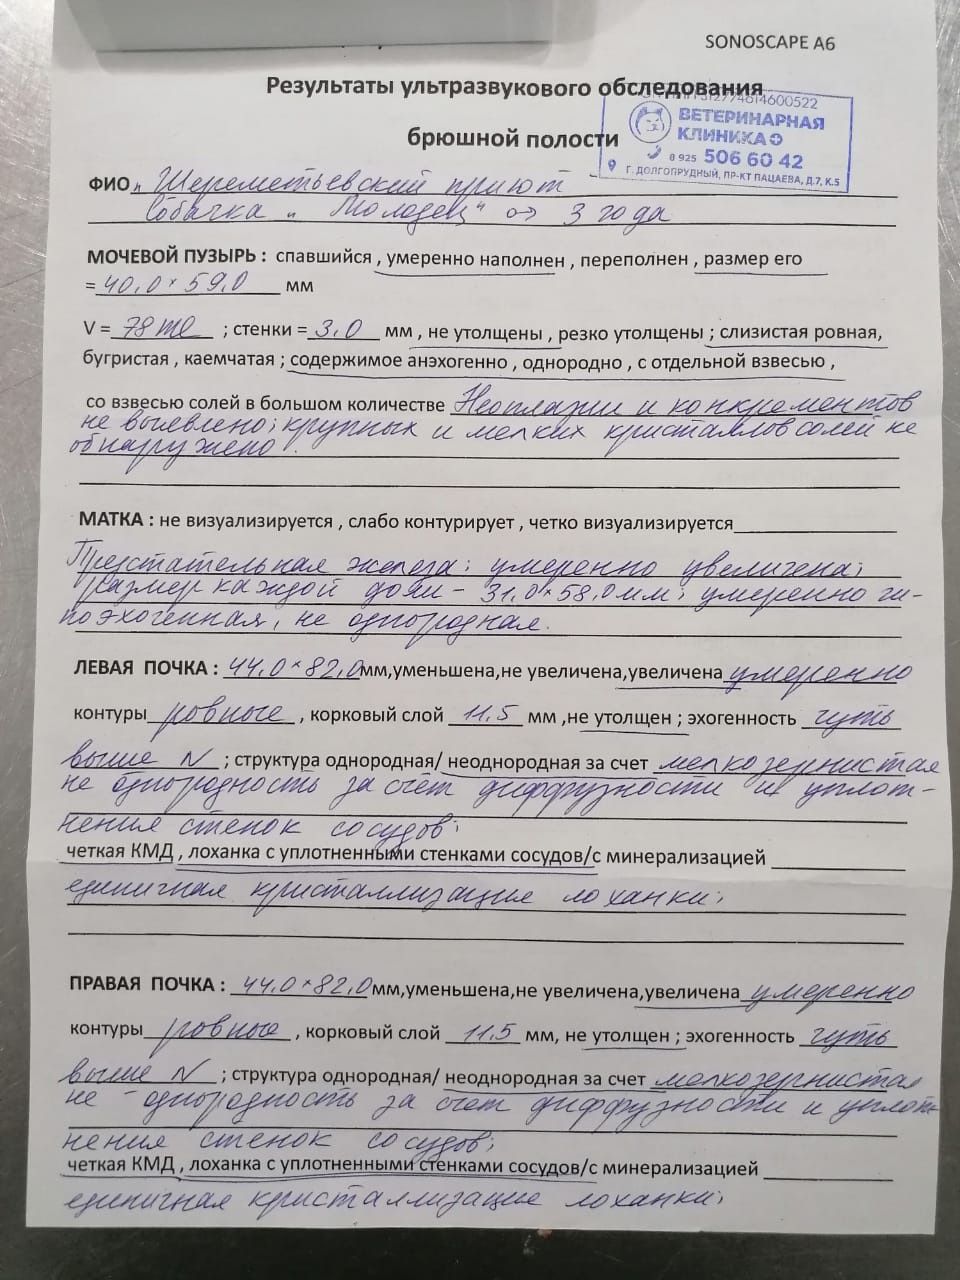 SONOSCAPE A6
Результаты ультразвукового обследования
брюшной полости
312774614600522
ВЕТЕРИНАРНАЯ
КЛИНИКА
8 925 506 60 42
Г. ДОЛГОПРУДНЫЙ, ПР-КТ ПАЦАЕВА, Д.7, К.5
ФИО „ Шереметьевский приют
Собачка „ Молодец" 3 года
МОЧЕВОЙ ПУЗЫРЬ : спавшийся , умеренно наполнен , переполнен , размер его
= 40,0 × 59,0 мм
V = 78 ml ; стенки = 3,0 мм , не утолщены , резко утолщены ; слизистая ровная,
бугристая , каемчатая ; содержимое анэхогенно , однородно , с отдельной взвесью ,
со взвесью солей в большом количестве Неоплазии и конкрементов
не выявлено; крупных и мелких кристаллов солей не
обнаружено.
МАТКА : не визуализируется , слабо контурирует , четко визуализируется
Предстательная железа: умеренно увеличена;
размер каждой доли - 31,0 × 58,0 мм; умеренно ги-
поэхогенная, не однородная.
ЛЕВАЯ ПОЧКА : 44,0 × 82,0 мм,уменьшена,не увеличена,увеличена умеренно
контуры ровные , корковый слой 11,5 мм ,не утолщен ; эхогенность чуть
выше N ; структура однородная/ неоднородная за счет мелкозернистая
не однородность за счёт диффузности и уплот-
нения стенок сосудов;
четкая КМД , лоханка с уплотненными стенками сосудов/с минерализацией
единичная кристаллизация лоханки;
ПРАВАЯ ПОЧКА : 44,0 × 82,0 мм,уменьшена,не увеличена,увеличена умеренно
контуры ровные , корковый слой 11,5 мм, не утолщен ; эхогенность чуть
выше N ; структура однородная/ неоднородная за счет мелкозернистая
не - однородность за счет диффузности и уплот-
нения стенок сосудов;
четкая КМД , лоханка с уплотненными стенками сосудов/с минерализацией
единичная кристаллизация лоханки;